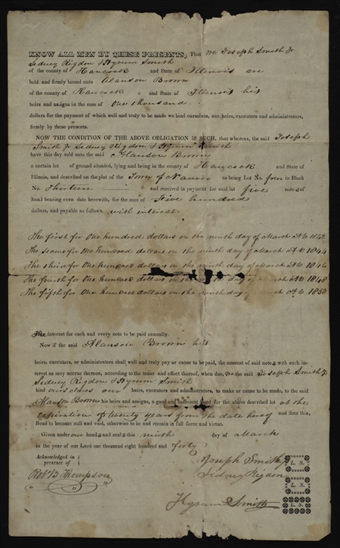 KNOW ALL MEN BY THESE PRESENTS, That we Joseph Smith Jr
Sidney Rigdon & Hyrum Smith
of the county of Hancock and State of Illinois are
held and firmly bound unto Alanson Brown
of the county of Hancock and State of Illinois his
heirs and assigns in the sum of one thousand
dollars for the payment of which well and truly to be made we bind ourselves, our heirs, executors and administrators,
firmly by these presents.
NOW THE CONDITION OF THE ABOVE OBLIGATION IS SUCH, that whereas, the said Joseph
Smith Jr Sidney Rigdon & Hyrum Smith
have this day sold unto the said Alanson Brown
a certain lot of ground situated, lying and being in the county of Hancock and State of
Illinois, and described on the plat of the Town of Nauvoo as being Lot No. four in Block
No. Thirteen and received in payment for said lot five notes of
hand bearing even date herewith, for the sum of Five hundred
dollars, and payable as follows, with interest
The first for One hundred dollars on the ninth day of March A D 1842
The second for One hundred dollars on the ninth day of March A D 1844
The third for One hundred dollars on the ninth day of March A D 1846
The fourth for One hundred dollars on the ninth day of March A D 1848
The fifth for One hundred dollars on the ninth day of March A D 1850
The interest for each and every note to be paid annually.
Now if the said Alanson Brown his
heirs, executors, or administrators, shall well and truly pay or cause to be paid, the amount of said notes with such in-
terest as may accrue thereon, according to the tenor and effect thereof, when due, the said Joseph Smith Jr
Sidney Rigdon & Hyrum Smith
bind ourselves our heirs, executors and administrators, to make or cause to be made, to the said
Alanson Brown his heirs and assigns, a good and sufficient deed for the above described lot at the
expiration of twenty years from the date hereof and then this
Bond to become null and void, otherwise to be and remain in full force and virtue.
Given under our hands and seals this ninth day of March
in the year of our Lord one thousand eight hundred and forty
Acknowledged in
presence of
Rob. B Thompson
Joseph Smith Jr L. S.
Sidney Rigdon L. S.
Hyrum Smith L. S.